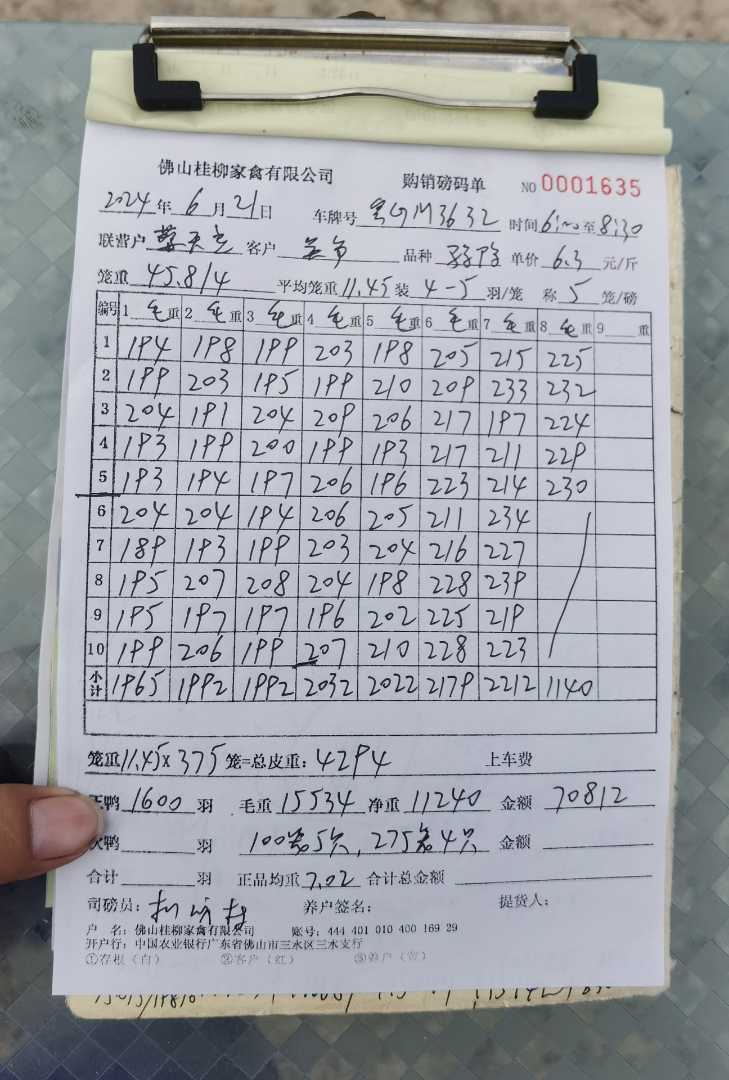 佛山桂柳家禽有限公司 购销磅码单 NO 0001635
2024年 6月21日 车牌号 M3632 时间 6:00至8:30
联营户 客户 品种 单价 6.3 元/斤
笼重 45.8/4 平均笼重 11.45 装 4-5 羽/笼 称 5 笼/磅
编号 1 毛重 2 毛重 3 毛重 4 毛重 5 毛重 6 毛重 7 毛重 8 毛重 9 重
1 194 198 199 203 198 205 215 225
2 199 203 195 199 210 209 233 232
3 204 191 204 209 206 217 197 224
4 193 199 200 199 193 217 211 229
5 193 194 197 206 196 223 214 230
6 204 204 194 206 205 211 234
7 189 193 199 203 204 216 227
8 195 207 208 204 198 228 239
9 195 197 197 196 202 225 219
10 199 206 199 207 210 228 223
小计 1965 1992 1992 2032 2022 2179 2212 1140
笼重 11.45×375 笼=总皮重: 4294 上车费
正鸭 1600 羽 毛重 15534 净重 11240 金额 70812
次鸭 羽 100笼5只, 275笼4只 金额
合计 羽 正品均重 7.02 合计总金额
司磅员: 养户签名: 提货人:
户 名: 佛山桂柳家禽有限公司 账号: 444 401 010 400 169 29
开户行: 中国农业银行广东省佛山市三水区三水支行
①存根(白) ②客户(红) ③养户(黄)